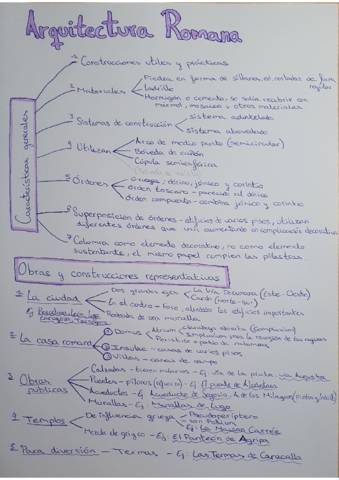 Arquitectura Romana
Características generales
1 Construcciones útiles y prácticas
2 Materiales
Piedra en forma de sillares, el, de forma regular
Ladrillo
Hormigón o cemento, se solía recubrir con mármol, mosaico u otros materiales
3 Sistemas de construcción
sistema adintelado
sistema abovedado
4 Utilizan
Arco de medio punto (semicircular)
Bóveda de cañón
Cúpula semiesférica
5 Órdenes
Griegos: dórico, jónico y corintio
Orden toscano - parecido al dórico
Orden compuesto - combina jónico y corintio
6 Superposición de órdenes - edificios de varios pisos, utilizan
diferentes órdenes que van aumentando en complicación decorativa
7 Columna como elemento decorativo, no como elemento
sustentante, el mismo papel cumplen las pilastras
Obras y construcciones representativas
La ciudad
Dos grandes ejes
La vía Decumana (Este-Oeste)
Cardo (norte-sur)
En el centro - Foro, alrededor los edificios importantes
Rodeada de una muralla
Ej
La casa romana
1 Domus
Atrium
(compluvium)
para la recogida de las aguas
Peristilo - patio de columnas
2 Insulae - casas de varios pisos
3 Villas - casas de campo
3 Obras públicas
Calzadas - Ej vía de la plata, vía Augusta
Puentes - pilares Ej El puente de Alcántara
Acueductos - Ej Acueducto de Segovia, A. de los Milagros
Murallas - Ej Murallas de Lugo
4 Templos
De influencia griega
Pseudoperíptero
con Podium
Ej La Maison Carrée
Modo de griego - Ej El Panteón de Agripa
5 Para diversión - Termas - Ej Las Termas de Caracalla